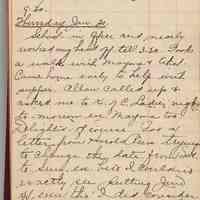 9.30.
Thursday Jan. 21.
School in 9 for and nearly
worked my head off till 3:30. Took
a walk with Maynie & Chet.
Came home early to help with
supper. Allen called up &
asked me to K. of C. Ladies night
to-morrow eve. Maynie too.
Delighted of course. Got a
letter from Harold Pero trying
to change the date from Sat.
to Sun. eve. Told I could
exactly see putting Jim
off, even tho' I did consider